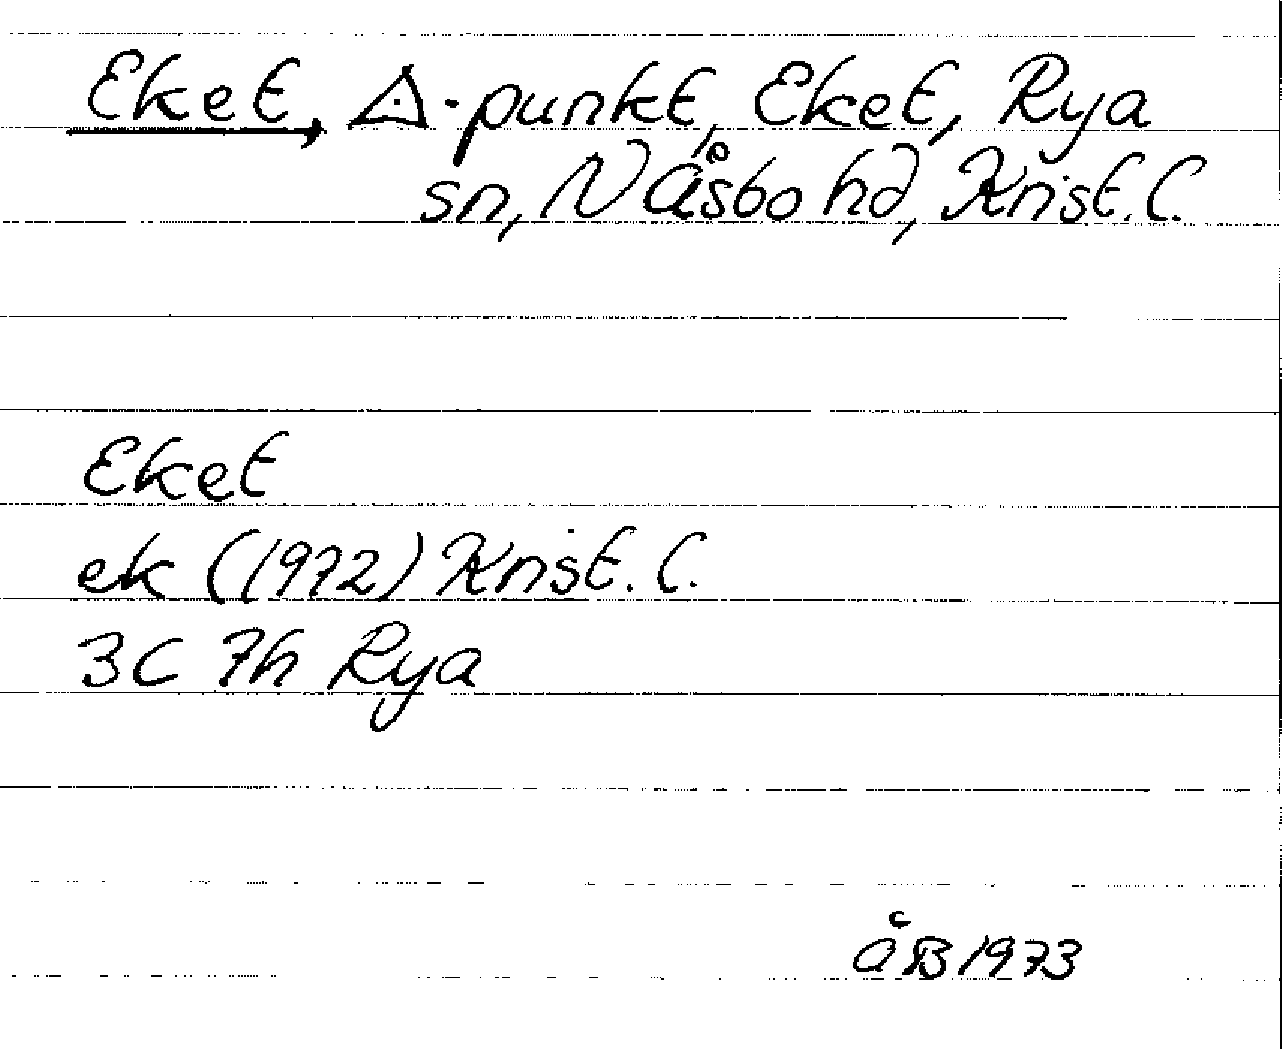 Eket, △-punkt, Eket, Rya
sn, N Åsbo hd, Krist. l.
Eket
ek (1972) Krist. l.
3C 7h Rya
ÅB 1973